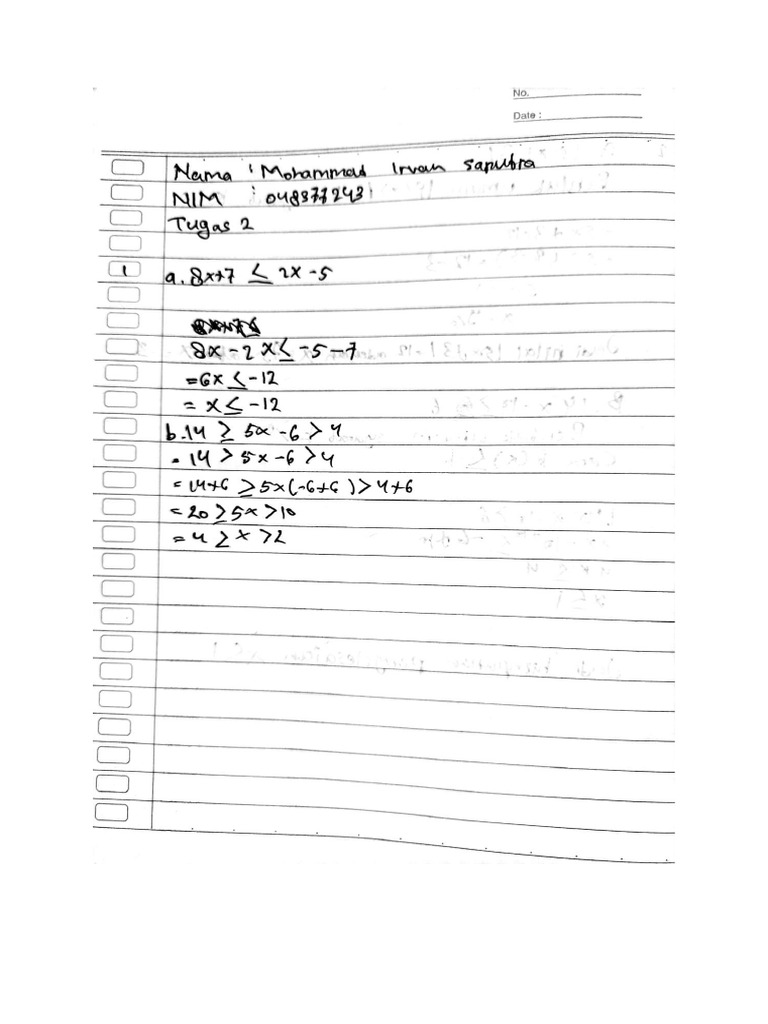 No.
Date :
Nama : Mohammad Irvan Saputra
NIM : 048377243
Tugas 2
1 a. 8x+7 ≤ 2x -5
8x - 2x ≤ -5 -7
= 6x ≤ -12
= x ≤ -12
b. 14 ≥ 5x - 6 > 4
= 14 > 5x - 6 > 4
= 14+6 ≥ 5x (-6+6) > 4+6
= 20 ≥ 5x > 10
= 4 ≥ x > 2